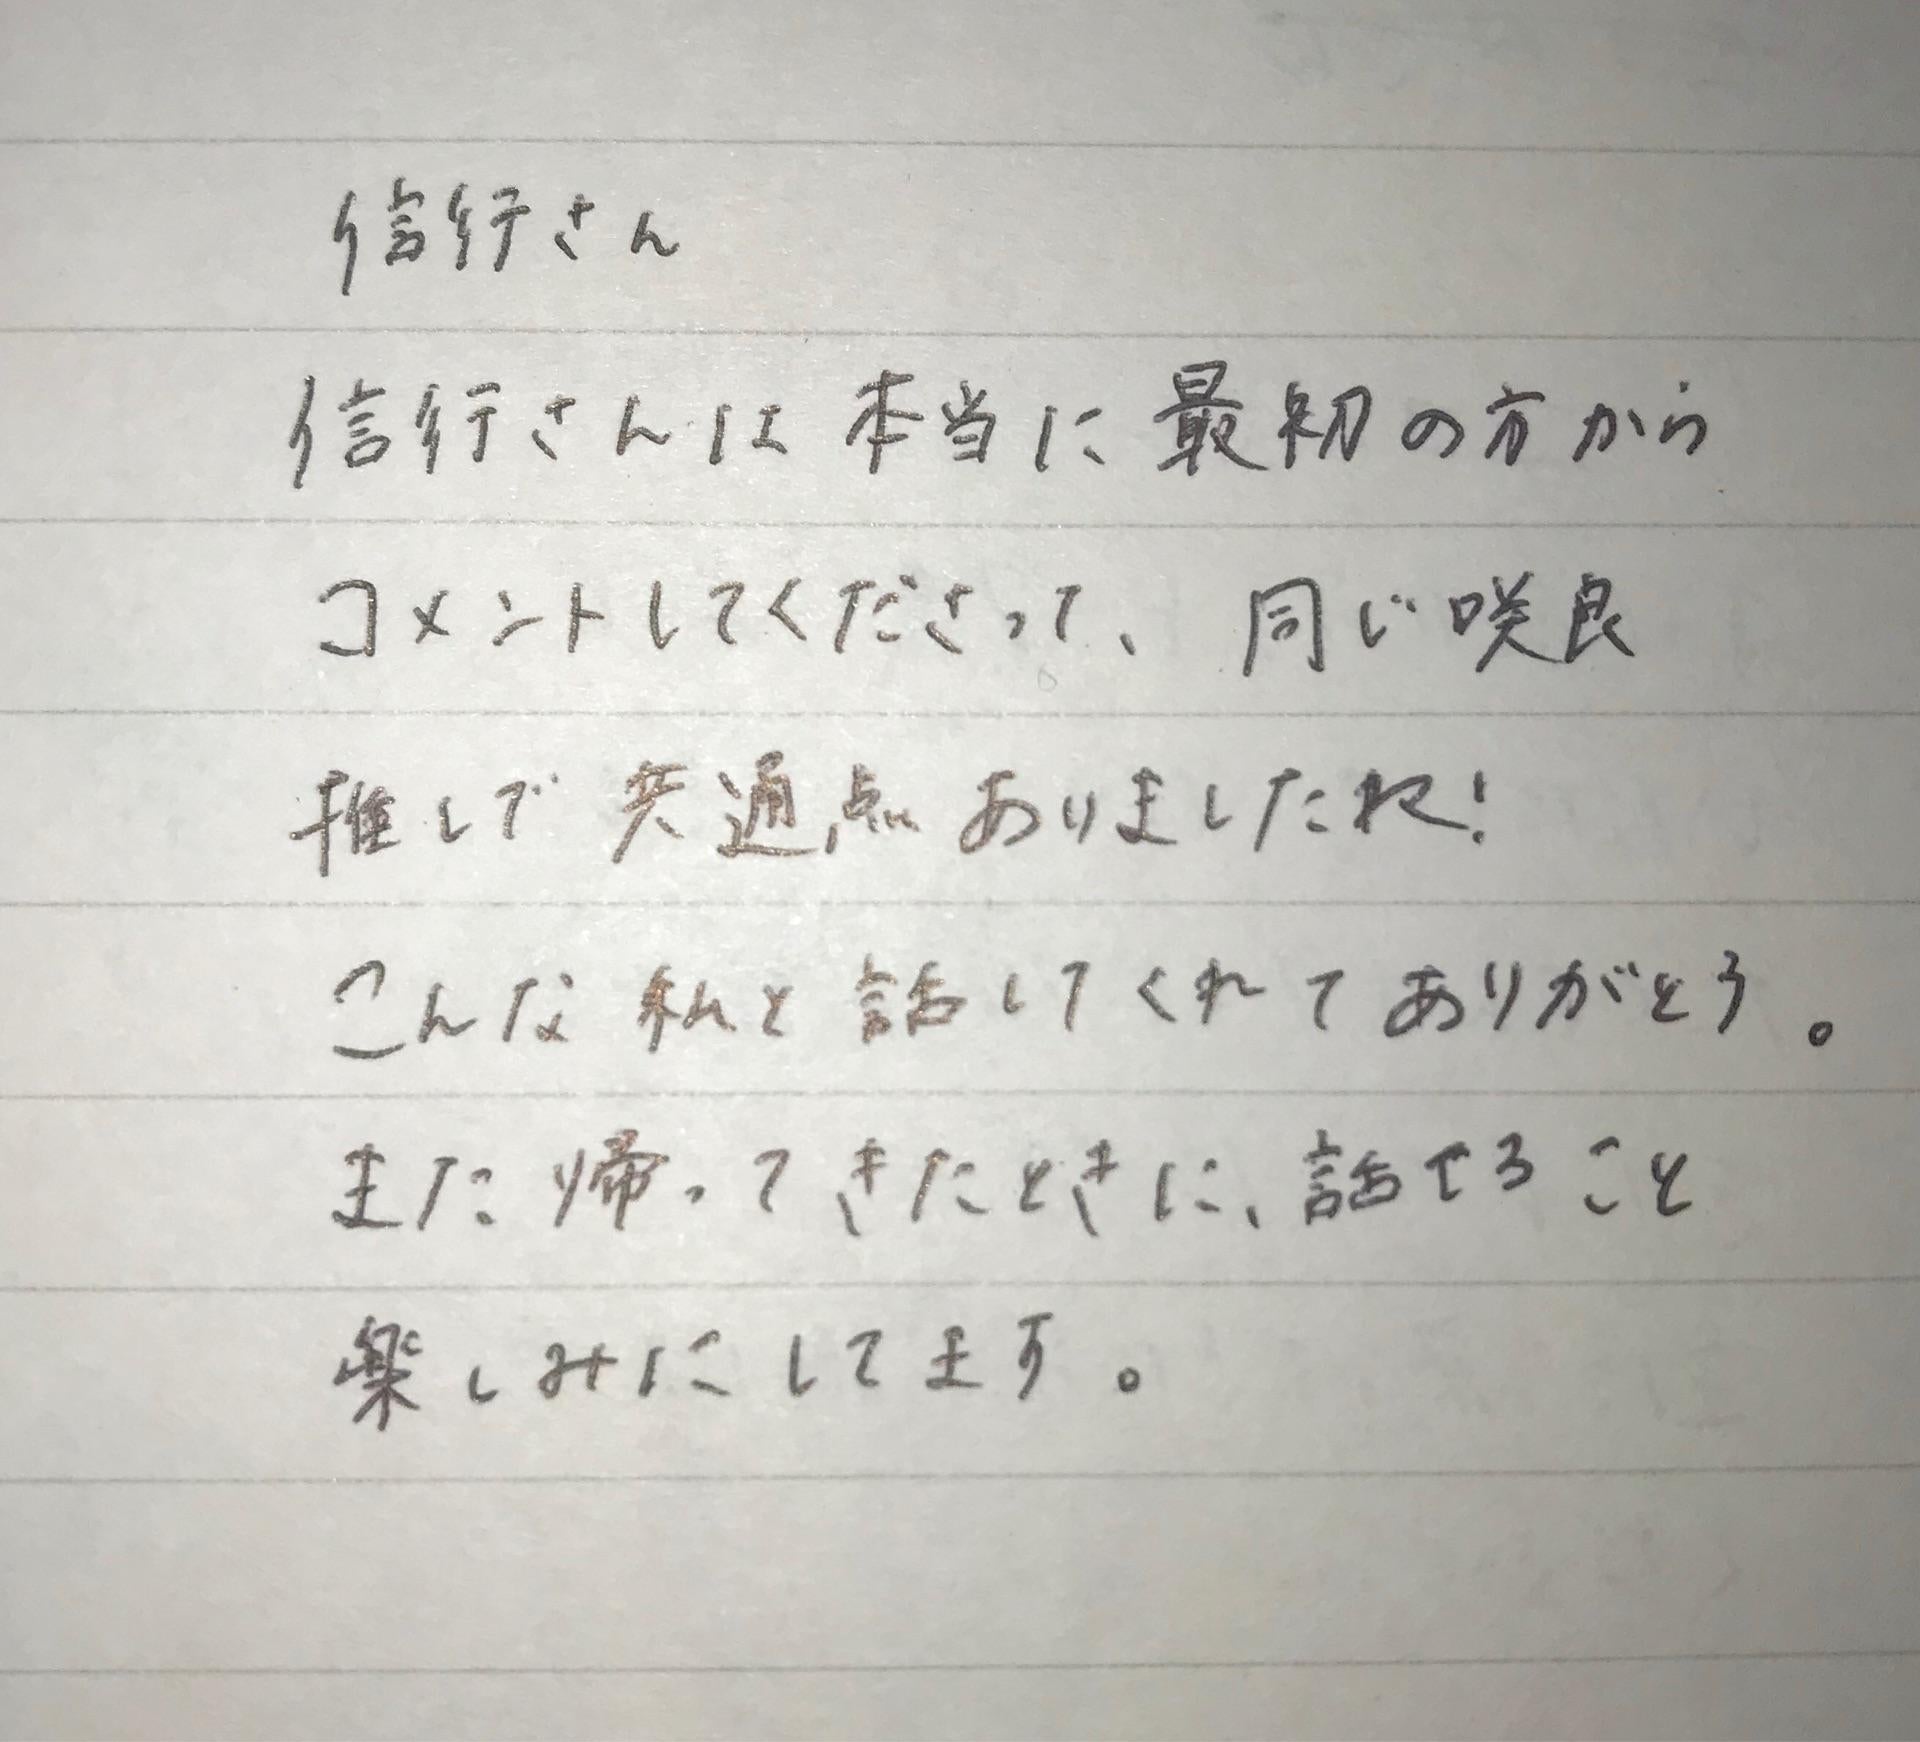 信行さん
信行さんは本当に最初の方から
コメントしてくださって、同じ咲良
推しで共通点ありましたね!
こんな私と話してくれてありがとう。
また帰ってきたときに、話せること
楽しみにしてます。